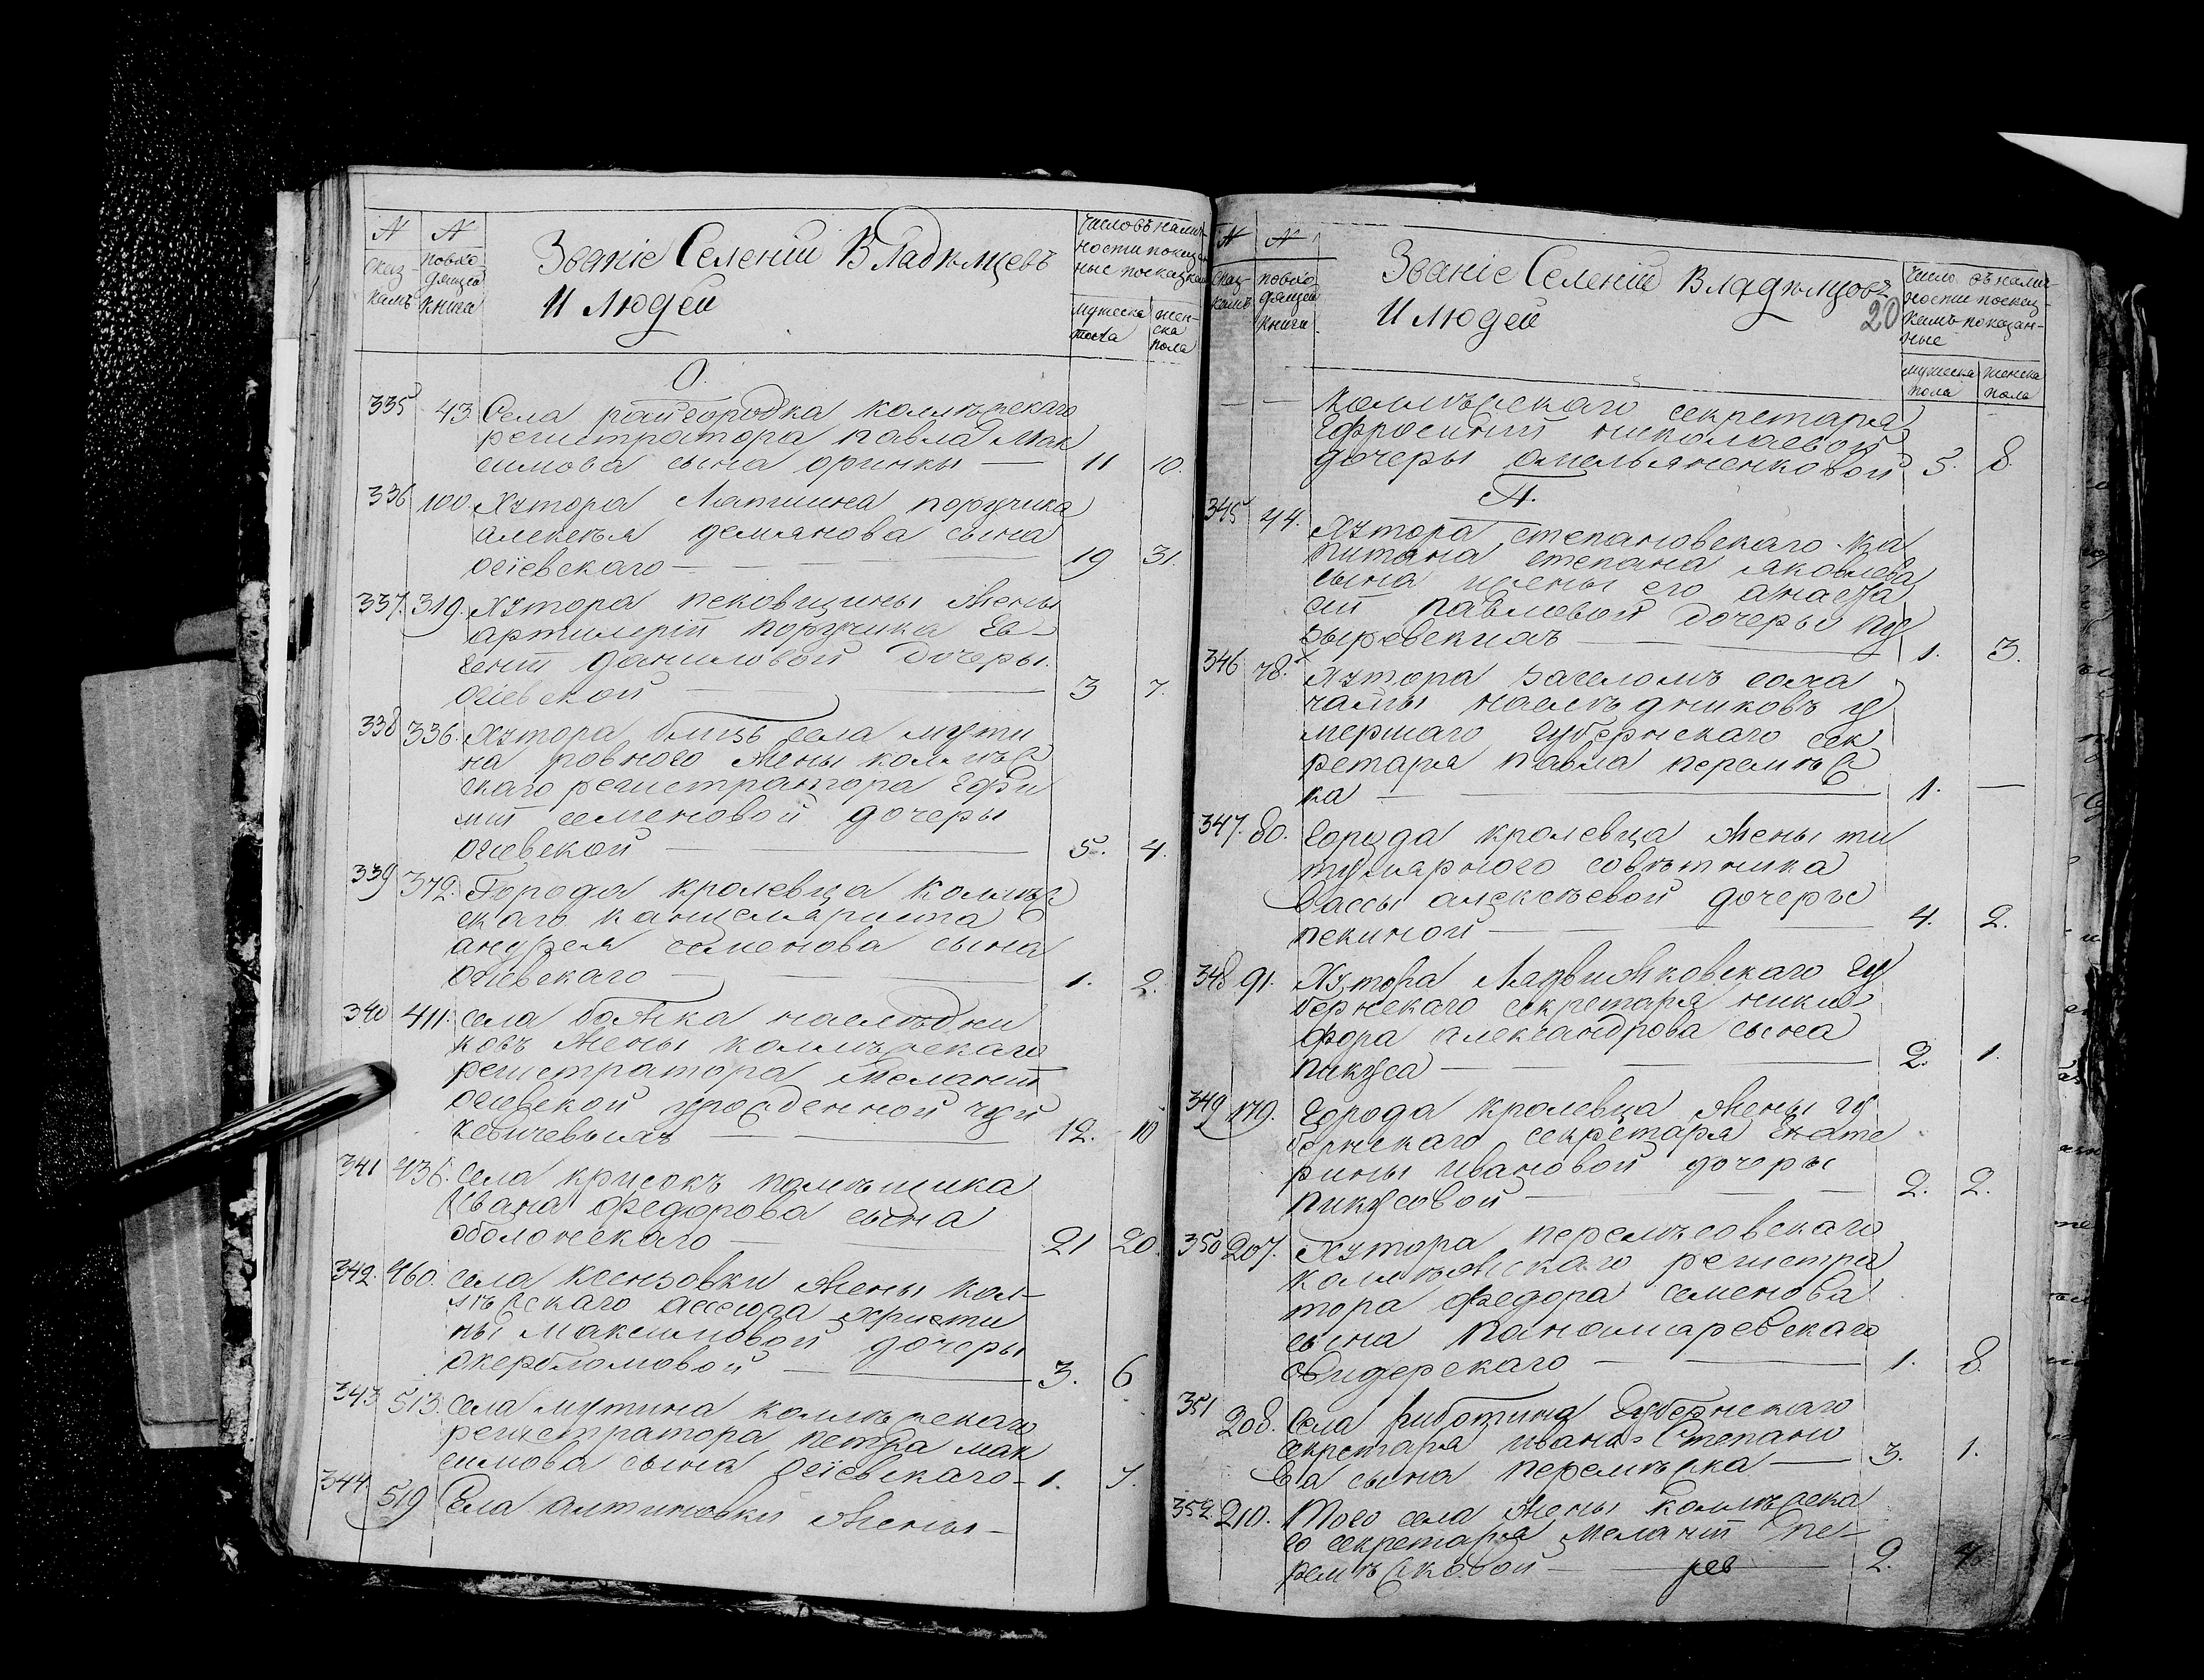 N
сказ-
камъ
N
повхо
дящей
книге
Званіе Селеній Владѣлцевъ
И Людей
Число въ налич-
ности показан
ные по сказкам
мужеска
пола
жен-
ска
пола
О.
335 43. Села райгородка коллѣжскаго
регистратора павла Мак
симова сына оринки — 11 10.
336 100. Хутора Лапшина поручика
алексѣя демянова сына
огіевскаго — 19 31.
337. 319. Хутора пековщины жены
артилеріи поручика Ев-
геніи даниловой дочеры
огіевской — 3 7.
338 336. Хутора близь села мути
на ровного жены коллѣж
скаго регистратора Ефи
міи семеновой дочеры
огіевской — 5. 4.
339 372. Города кролевца коллѣж
скаго канцеляриста
андрея семенова сына
огіевскаго — 1. 2.
340 411. села божка наслѣдни
ковъ жены коллѣжскаго
регистратора Меланіи
огіевской урожденной
12. 10
341 436. села крисокъ помѣщика
Ивана федорова сына
оболонскаго — 21 20.
342. 460. села ксензовки жены кол-
лѣжскаго ассесора христи
ны Максимовой дочеры
окербломовой — 3. 6
343 513. села мутина коллѣжскаго
регистратора петра мак
симова сына огіевскаго — 1. 7.
344 519 Села алтиновки жены —
N
сказ-
камъ
N
повхо
дящей
книги
Званіе Селеній Владѣлцовъ
И Людей
20
Число въ налич-
ности по сказ-
камъ показан-
ные
мужеска
пола
женска
пола
— — коллѣжскаго секретаря
Ефросиніи николаевой
дочеры омельяненковой 5. 8.
П.
345 44. Хутора степановскаго ка
питана степана яковлева
сына жены его анаста
сіи павловой дочеры пу
зыревскихъ — 1. 3.
346 78. Хутора заселомъ
наслѣдниковъ у
мершаго губернскаго сек
ретаря павла перемѣж
ка — 1. —
347. 80. Города кролевца жены ти
тулярного совѣтника
Вассы алексѣевой дочеры
пекиной — 4. 2.
348 91. Хутора Лядвижковскаго гу
бернскаго секретаря ники
фора александрова сына
пикуса — 2. 1.
349 179. города кролевца жены гу
бернскаго секретаря Екате
рины ивановой дочеры
пикусовой — 2. 2.
350 207. Хутора
коллѣжскаго регистра
тора федора семенова
сына Паномаревскаго
свидерскаго — 1. 8.
351 208. Села риботина Губернскаго
секретаря ивана Степано
ва сына перемѣжка — 3. 1.
352 210. Того села жены коллѣжска
го секретаря Меланіи пе-
ремѣжковой — 2. 4.